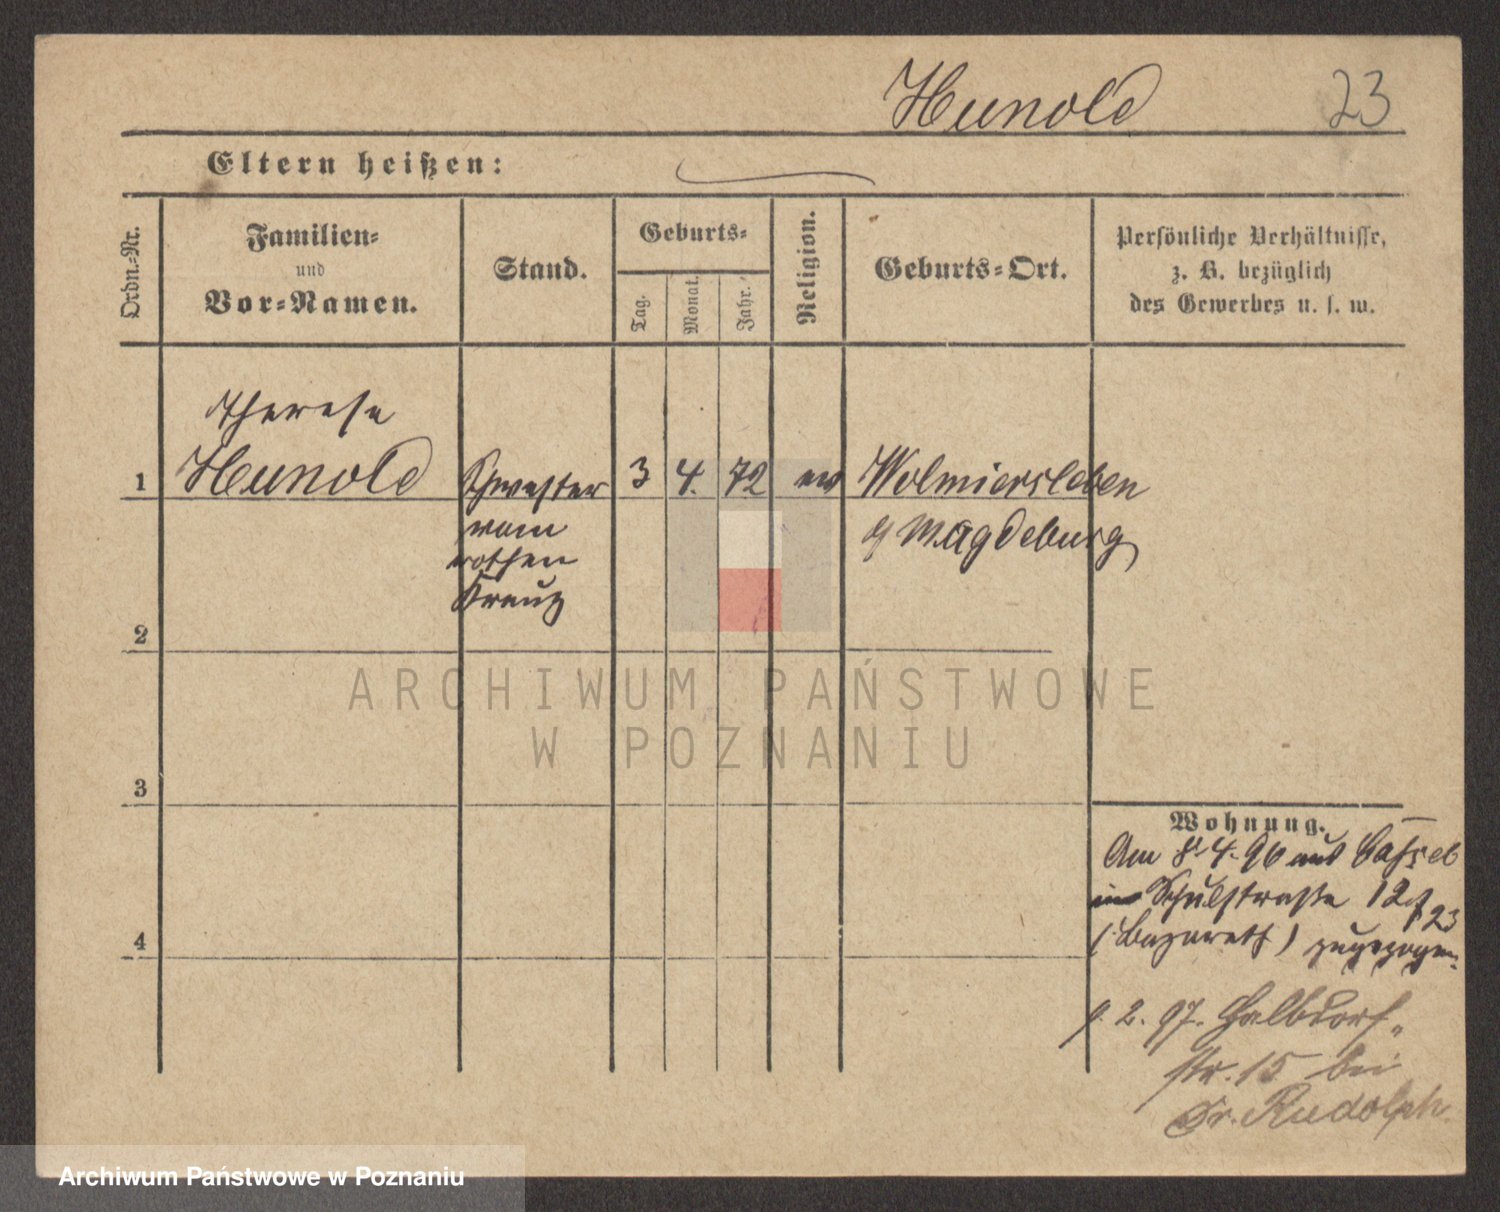 Hunold 23
Eltern heißen:
Ordn.-Nr.
Familien-
und
Vor-Namen.
Stand.
Geburts-
Tag.
Monat.
Jahr.
Religion.
Geburts-Ort.
Persönliche Verhältnisse,
z. B. bezüglich
des Gewerbes u. s. w.
Therese
1 Hunold Schwester 3 4. 72 ev Wolmiersleben
vom
rothen
Kreuz
Magdeburg
2
3
4
Wohnung.
Am 8 4. 96 aus Cassel
in Schulstraße 12/
23
(Lazareth) zugezogen.
2. 97. Halbdorf-
str. 15 bei
Dr. Rudolph.
ARCHIWUM PAŃSTWOWE
W POZNANIU
Archiwum Państwowe w Poznaniu